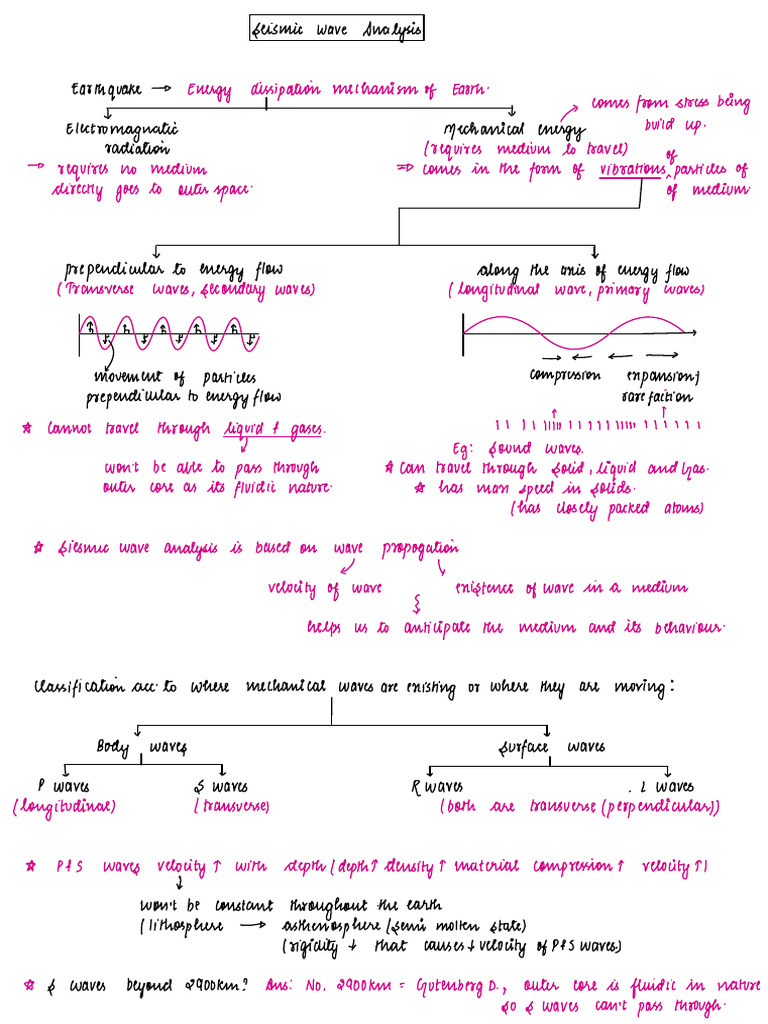 Seismic Wave Analysis
Earthquake → Energy dissipation mechanism of Earth.
Electromagnetic
radiation
→ requires no medium
directly goes to outer space.
Mechanical energy
(requires medium to travel)
⇒ comes in the form of vibrations of particles of
of medium.
comes from stress being
build up.
prependicular to energy flow
(Transverse waves, Secondary waves)
movement of particles
prependicular to energy flow
☆ Cannot travel through liquid & gases.
won't be able to pass through
outer core as its fluidic nature.
along the axis of energy flow
(longitudinal wave, primary waves)
compression
expansion/
rarefaction
Eg: Sound waves.
☆ Can travel through Solid, liquid and Gas.
☆ has max speed in solids.
(has closely packed atoms)
☆ Siesmic wave analysis is based on wave propogation
velocity of wave
existence of wave in a medium
helps us to anticipate the medium and its behaviour.
Classification acc. to where mechanical waves are existing or where they are moving:
Body waves
Surface waves
P waves
(longitudinal)
S waves
(transverse)
R waves
L waves
(both are transverse (perpendicular))
☆ P & S waves velocity ↑ with depth (depth ↑ density ↑ material compression ↑ velocity ↑)
won't be constant throughout the earth
(lithosphere → asthenosphere (semi molten state)
(rigidity ↓ that causes ↓ velocity of P & S waves.)
☆ S waves beyond 2900km? Ans: No. 2900km = Gutenberg D., outer core is fluidic in nature
so S waves can't pass through.